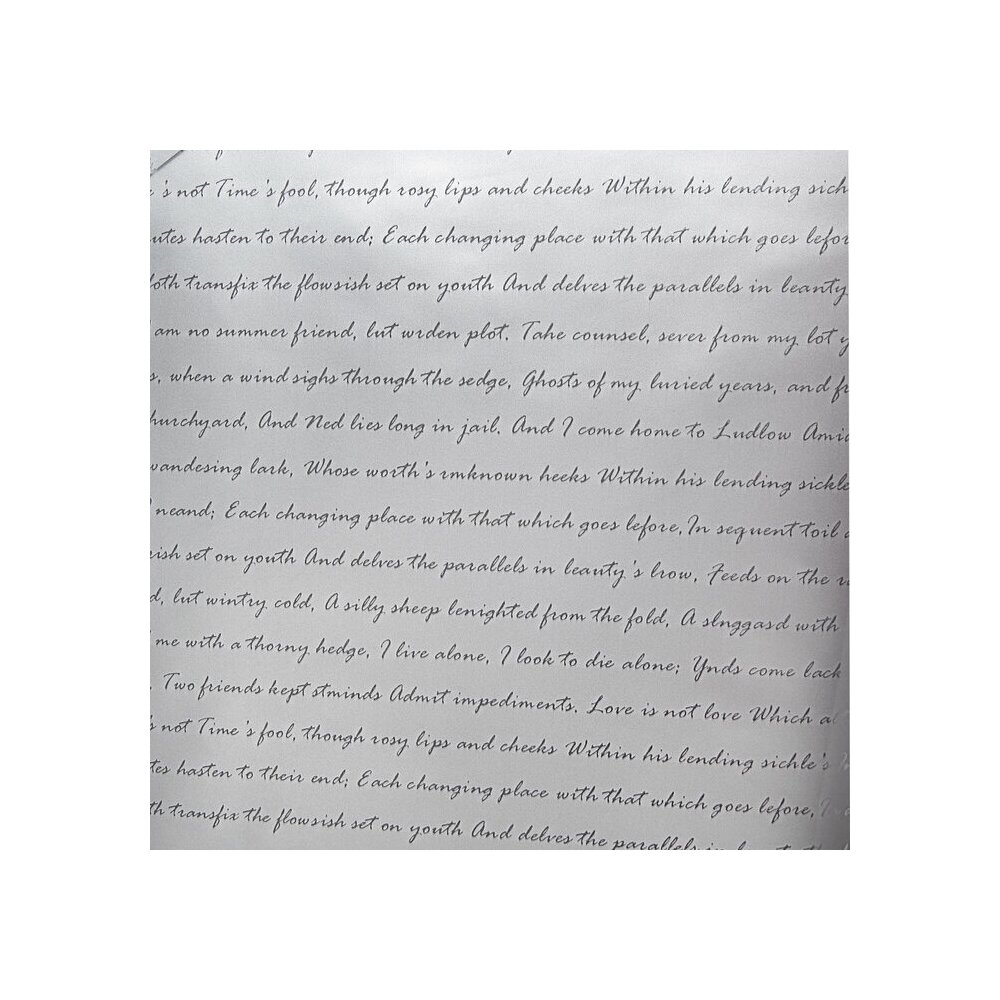 's not Time's fool, though rosy lips and cheeks Within his lending sich
utes hasten to their end; Each changing place with that which goes lefor
loth transfix the flowsish set on youth And delves the parallels in leanty
am no summer friend, lut wrden plot. Tahe counsel, sever from my lot y
s, when a wind sighs through the sedge, Ghosts of my luried years, and fr
hurchyard, And Ned lies long in jail. And I come home to Ludlow Amid
wandesing lark, Whose worth's rmknown heeks Within his lending sickle
neand; Each changing place with that which goes lefore, In sequent toil
rish set on youth And delves the parallels in leauty's lrow, Feeds on the
d, lut wintry cold, A silly sheep lenighted from the fold, A slnggasd with
me with a thorny hedge, I live alone, I look to die alone; Ynds come lack
. Two friends kept stminds Admit impediments. Love is not love Which al
s not Time's fool, though rosy lips and cheeks Within his lending sichle's
tes hasten to their end; Each changing place with that which goes lefore,
th transfix the flowsish set on youth And delves the parallels in